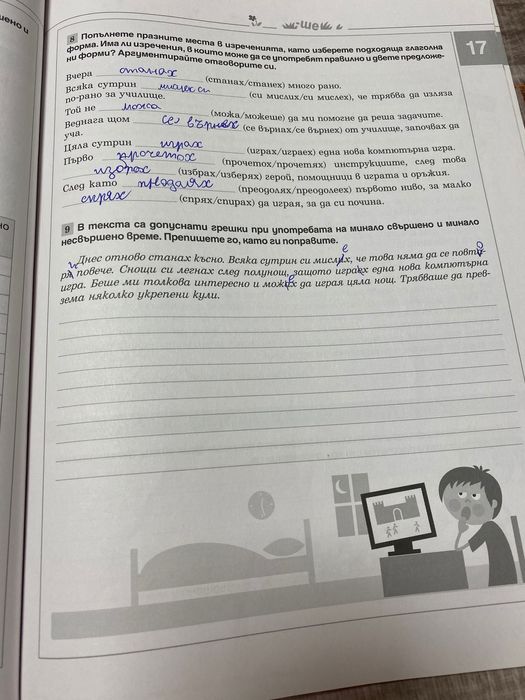 ше
17
8 Попълнете празните места в изреченията, като изберете подходяща глаголна
форма. Има ли изречения, в които може да се употребят правилно и двете предложе-
ни форми? Аргументирайте отговорите си.
Вчера станах (станах/станех) много рано.
Всяка сутрин мислех си (си мислих/си мислех), че трябва да изляза
по-рано за училище.
Той не можа (можа/можеше) да ми помогне да реша задачите.
Веднага щом се върнех (се върнах/се върнех) от училище, започвах да
уча.
Цяла сутрин играх (играх/играех) една нова компютърна игра.
Първо прочетох (прочетох/прочетях) инструкциите, след това
изброх (избрах/изберях) герой, помощници в играта и оръжия.
След като преодолях (преодолях/преодолеех) първото ниво, за малко
спрях (спрях/спирах) да играя, за да си почина.
9 В текста са допуснати грешки при употребата на минало свършено и минало
несвършено време. Препишете го, като ги поправите.
Днес отново станах късно. Всяка сутрин си мислих, че това няма да се повто-
ря повече. Снощи си легнах след полунощ, защото играех една нова компютърна
игра. Беше ми толкова интересно и можех да играя цяла нощ. Трябваше да прев-
зема няколко укрепени кули.